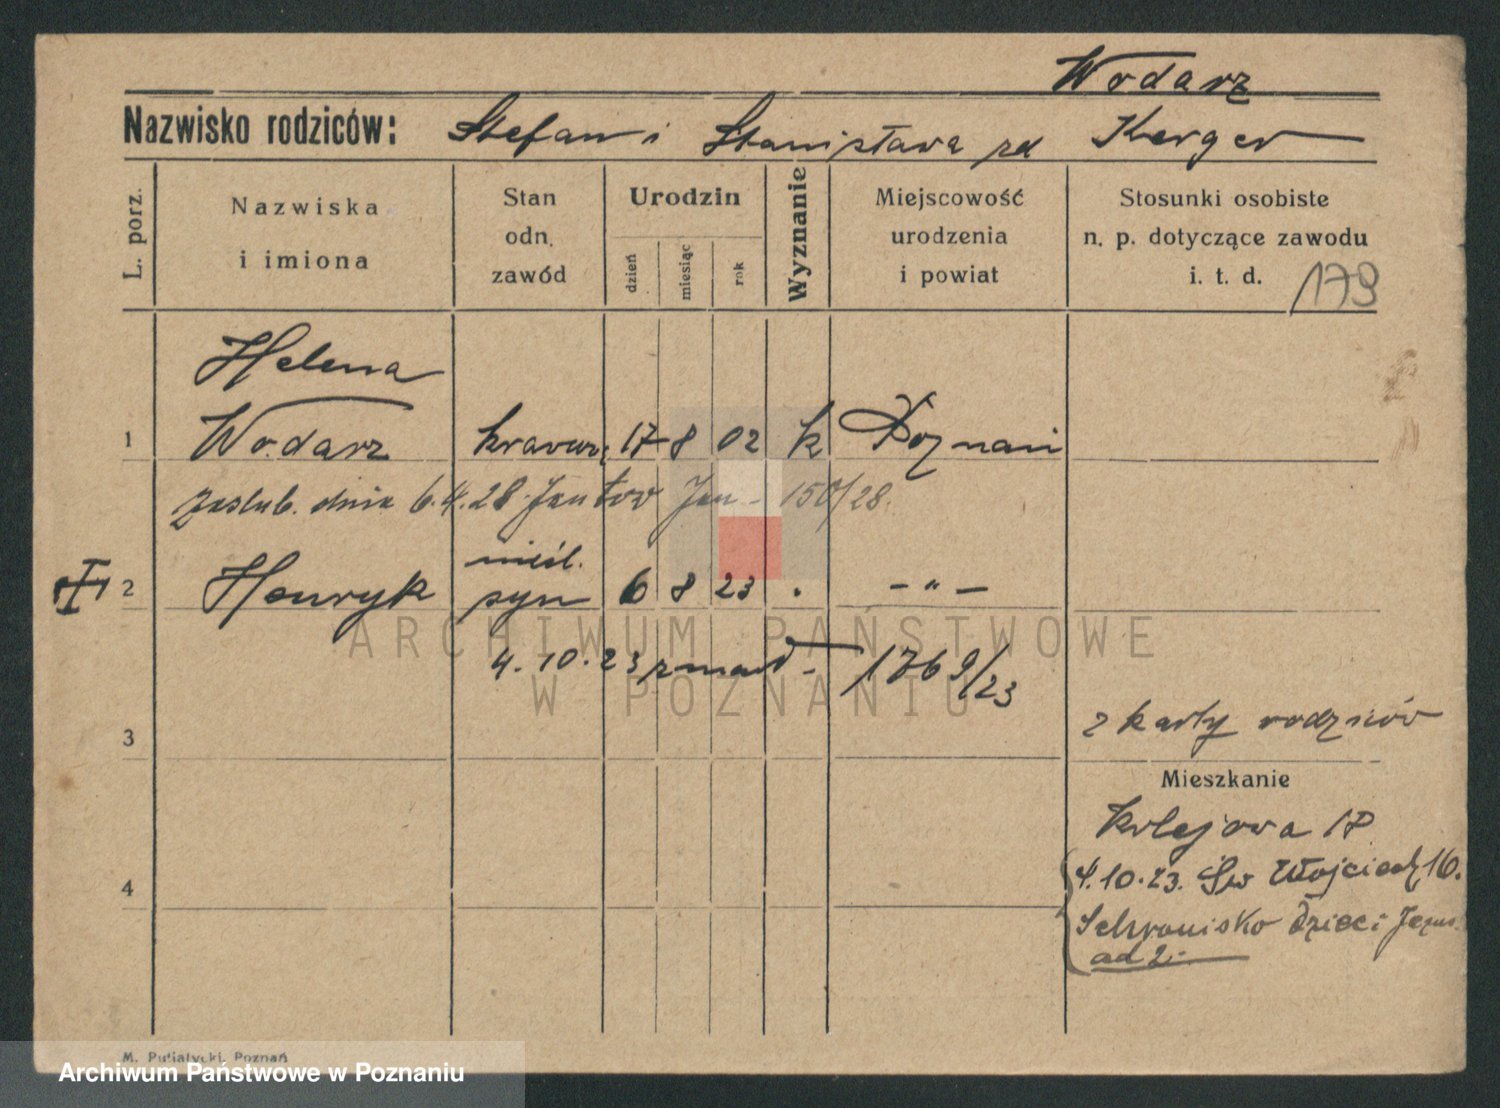 Wodarz
Nazwisko rodziców: Stefan i Stanisława zd Kerger
L. porz.
Nazwiska
i imiona
Stan
odn.
zawód
Urodzin
dzień
miesiąc
rok
Wyznanie
Miejscowość
urodzenia
i powiat
Stosunki osobiste
n. p. dotyczące zawodu
i. t. d.
179
Helena
1 Wodarz krawcz. 17 8 02 k Poznań
zaślub. dnia 6.4.28 Jan - 150/28.
nieśl.
2 Henryk syn 6 8 23 . - " -
4.10.23 zmarł - 1769/23
3
z karty rodziców
Mieszkanie
Kolejowa 17
4.10.23. Św Wojciech 16.
4
Schronisko Dzieci Jezus.
ad 2.
ARCHIWUM PAŃSTWOWE
W POZNANIU
M. Putiatycki, Poznań
Archiwum Państwowe w Poznaniu